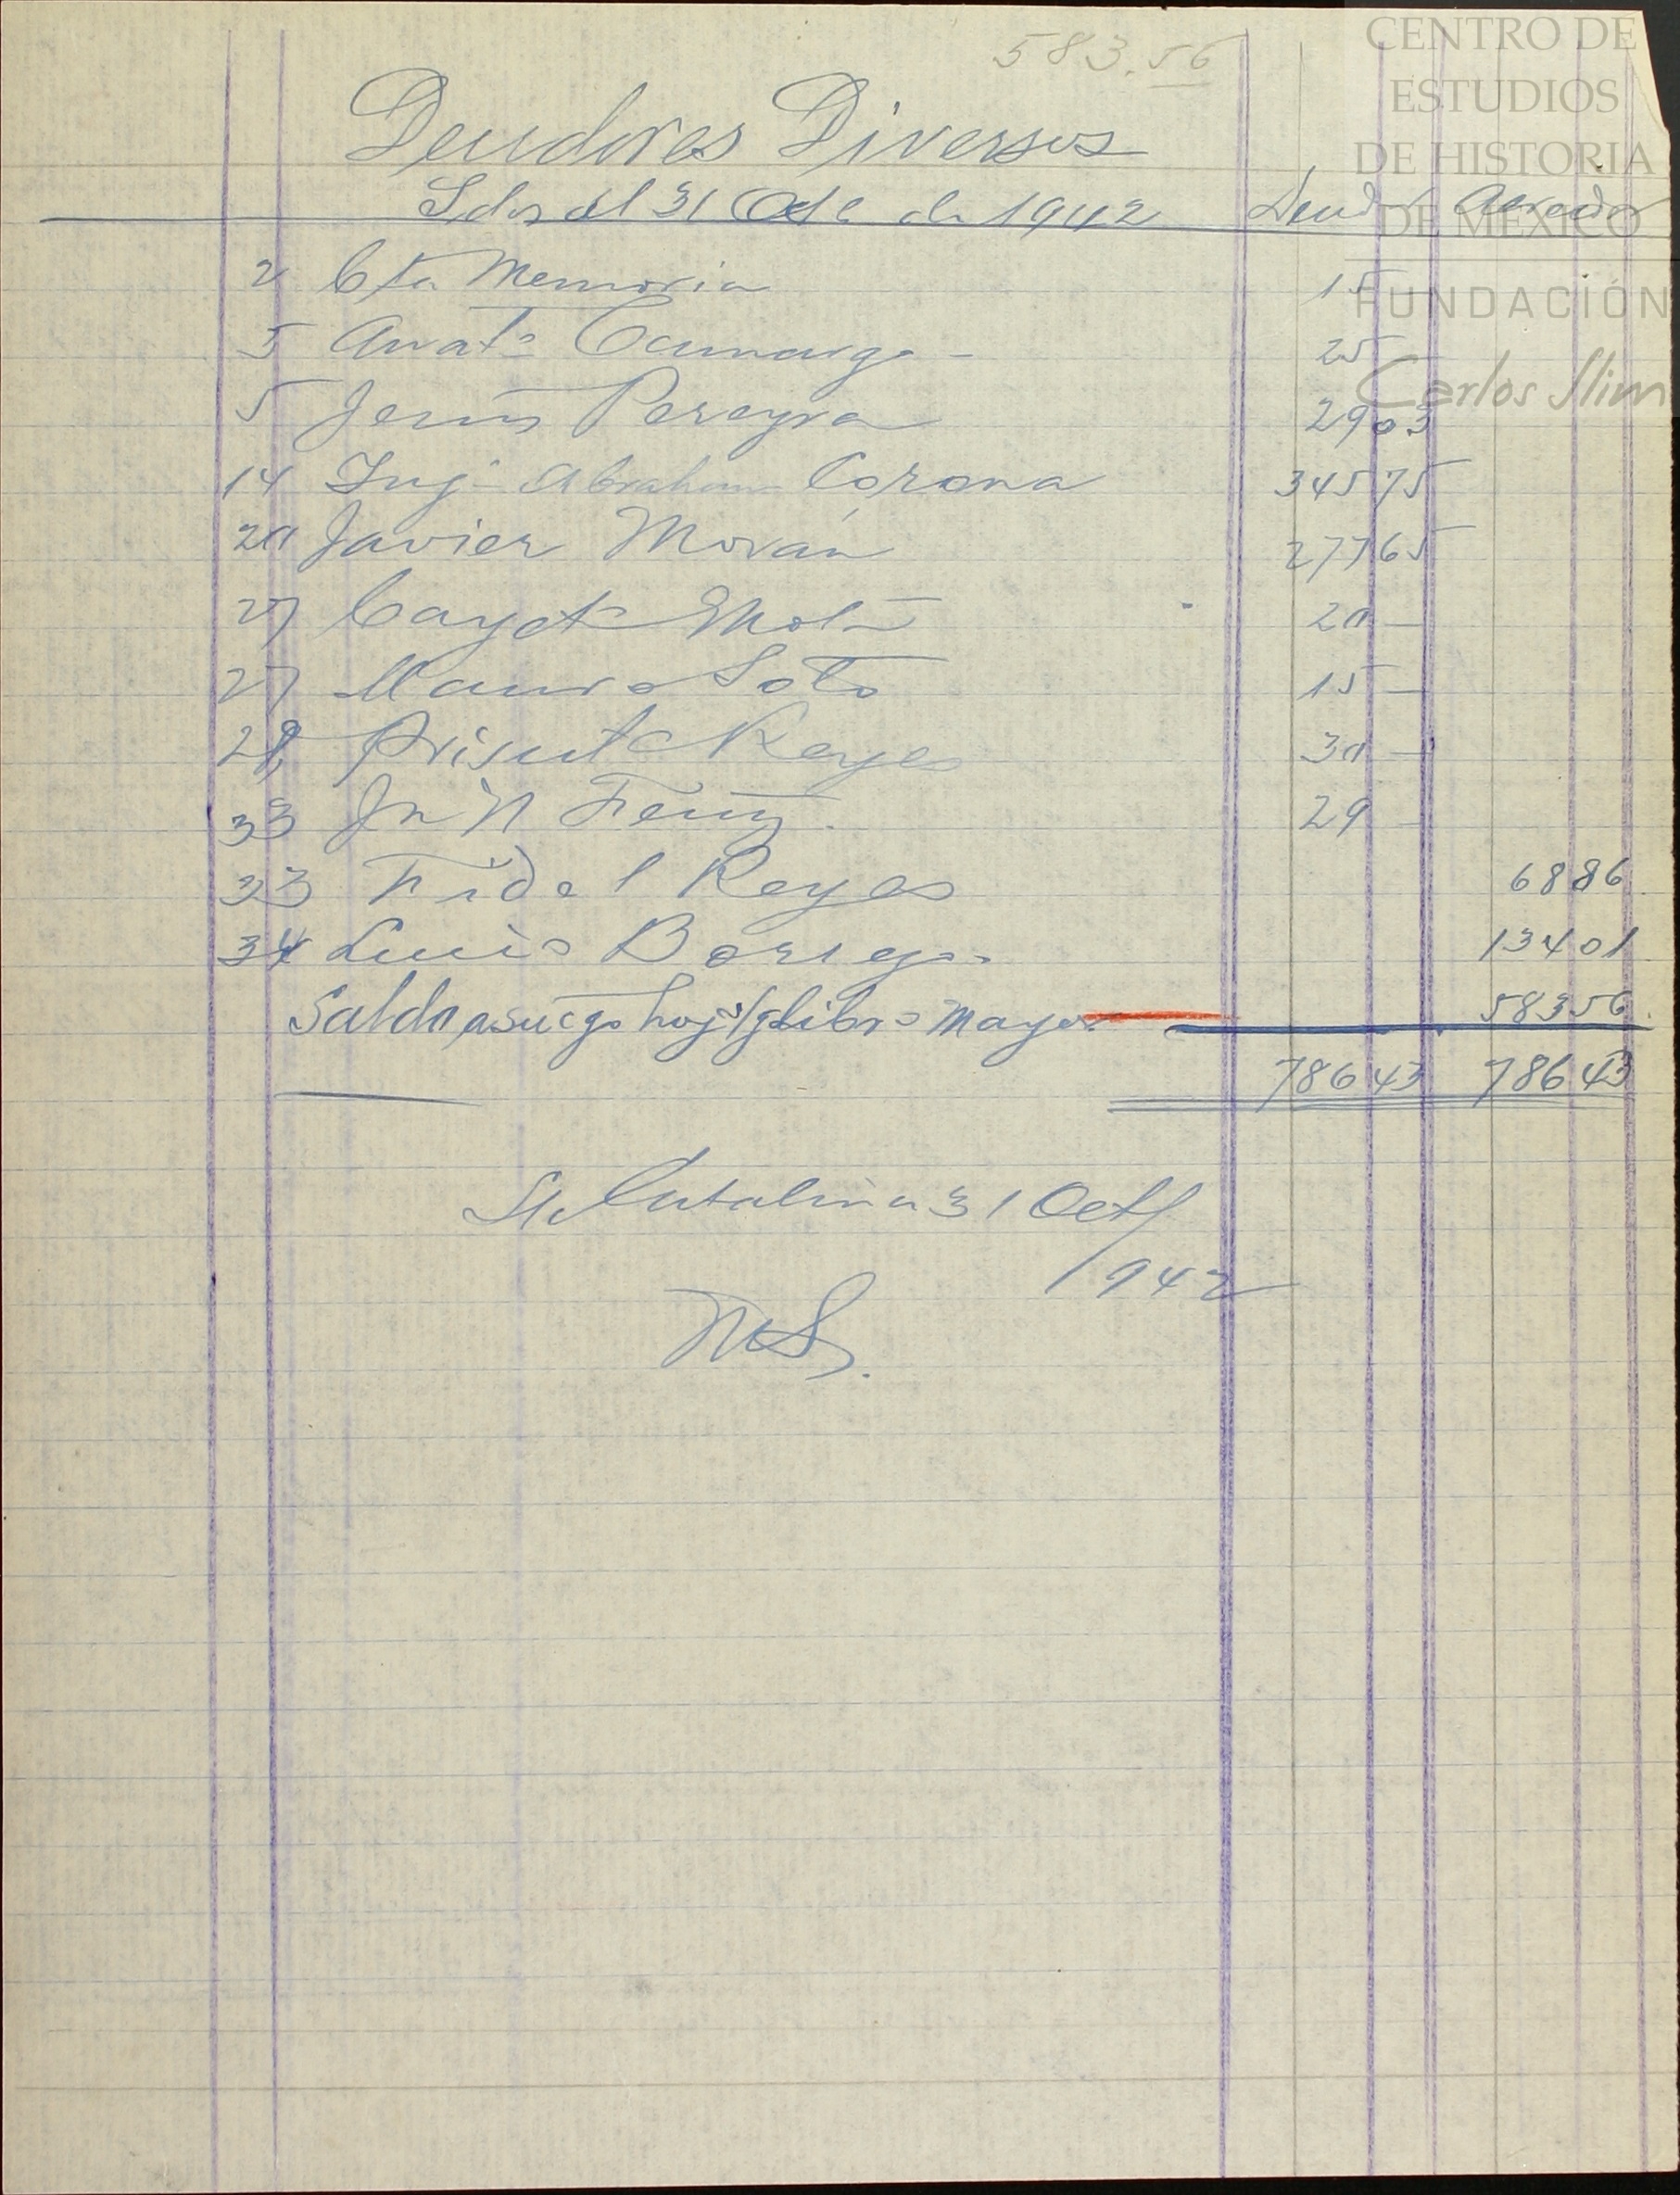 583.56
Deudores Diversos
Sdos al 31 Oct de 1942 Deudor Acreedor
2 Cta Memoria 15
5 Camargo - 25
5 Jesús Pereyra 29 03
14 Ing. Abraham Corona 345 75
20 Javier Morán 277 65
27 Cayet 20 —
27 Mauro Soto 15 —
28 Reyes 30 —
33 Jn N 29 —
33 Fidel Reyes 68 86
34 Luis Borrego 134 01
Saldo a su cgo hoy s/g libro Mayor 583 56
786 43 786 43
Sta Catalina 31 Oct/
1942
MS.
CENTRO DE
ESTUDIOS
DE HISTORIA
DE MÉXICO
FUNDACIÓN
Carlos Slim